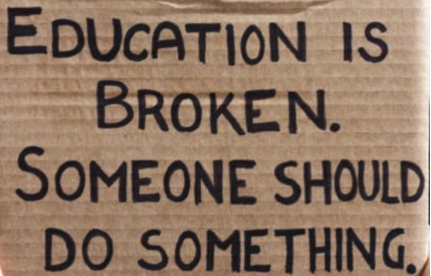 EDUCATION IS
BROKEN.
SOMEONE SHOULD
DO SOMETHING.